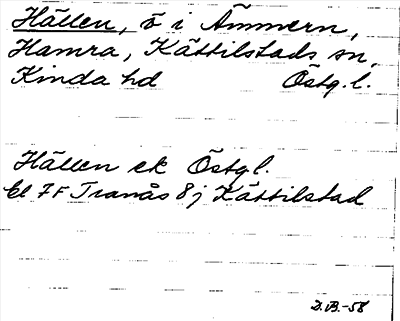 Hällen, ö i Ämmern,
Hamra, Kättilstads sn,
Kinda hd Östg. l.
Hällen ek Östgl.
bl 7F Tranås 8j Kättilstad
D.B.-58